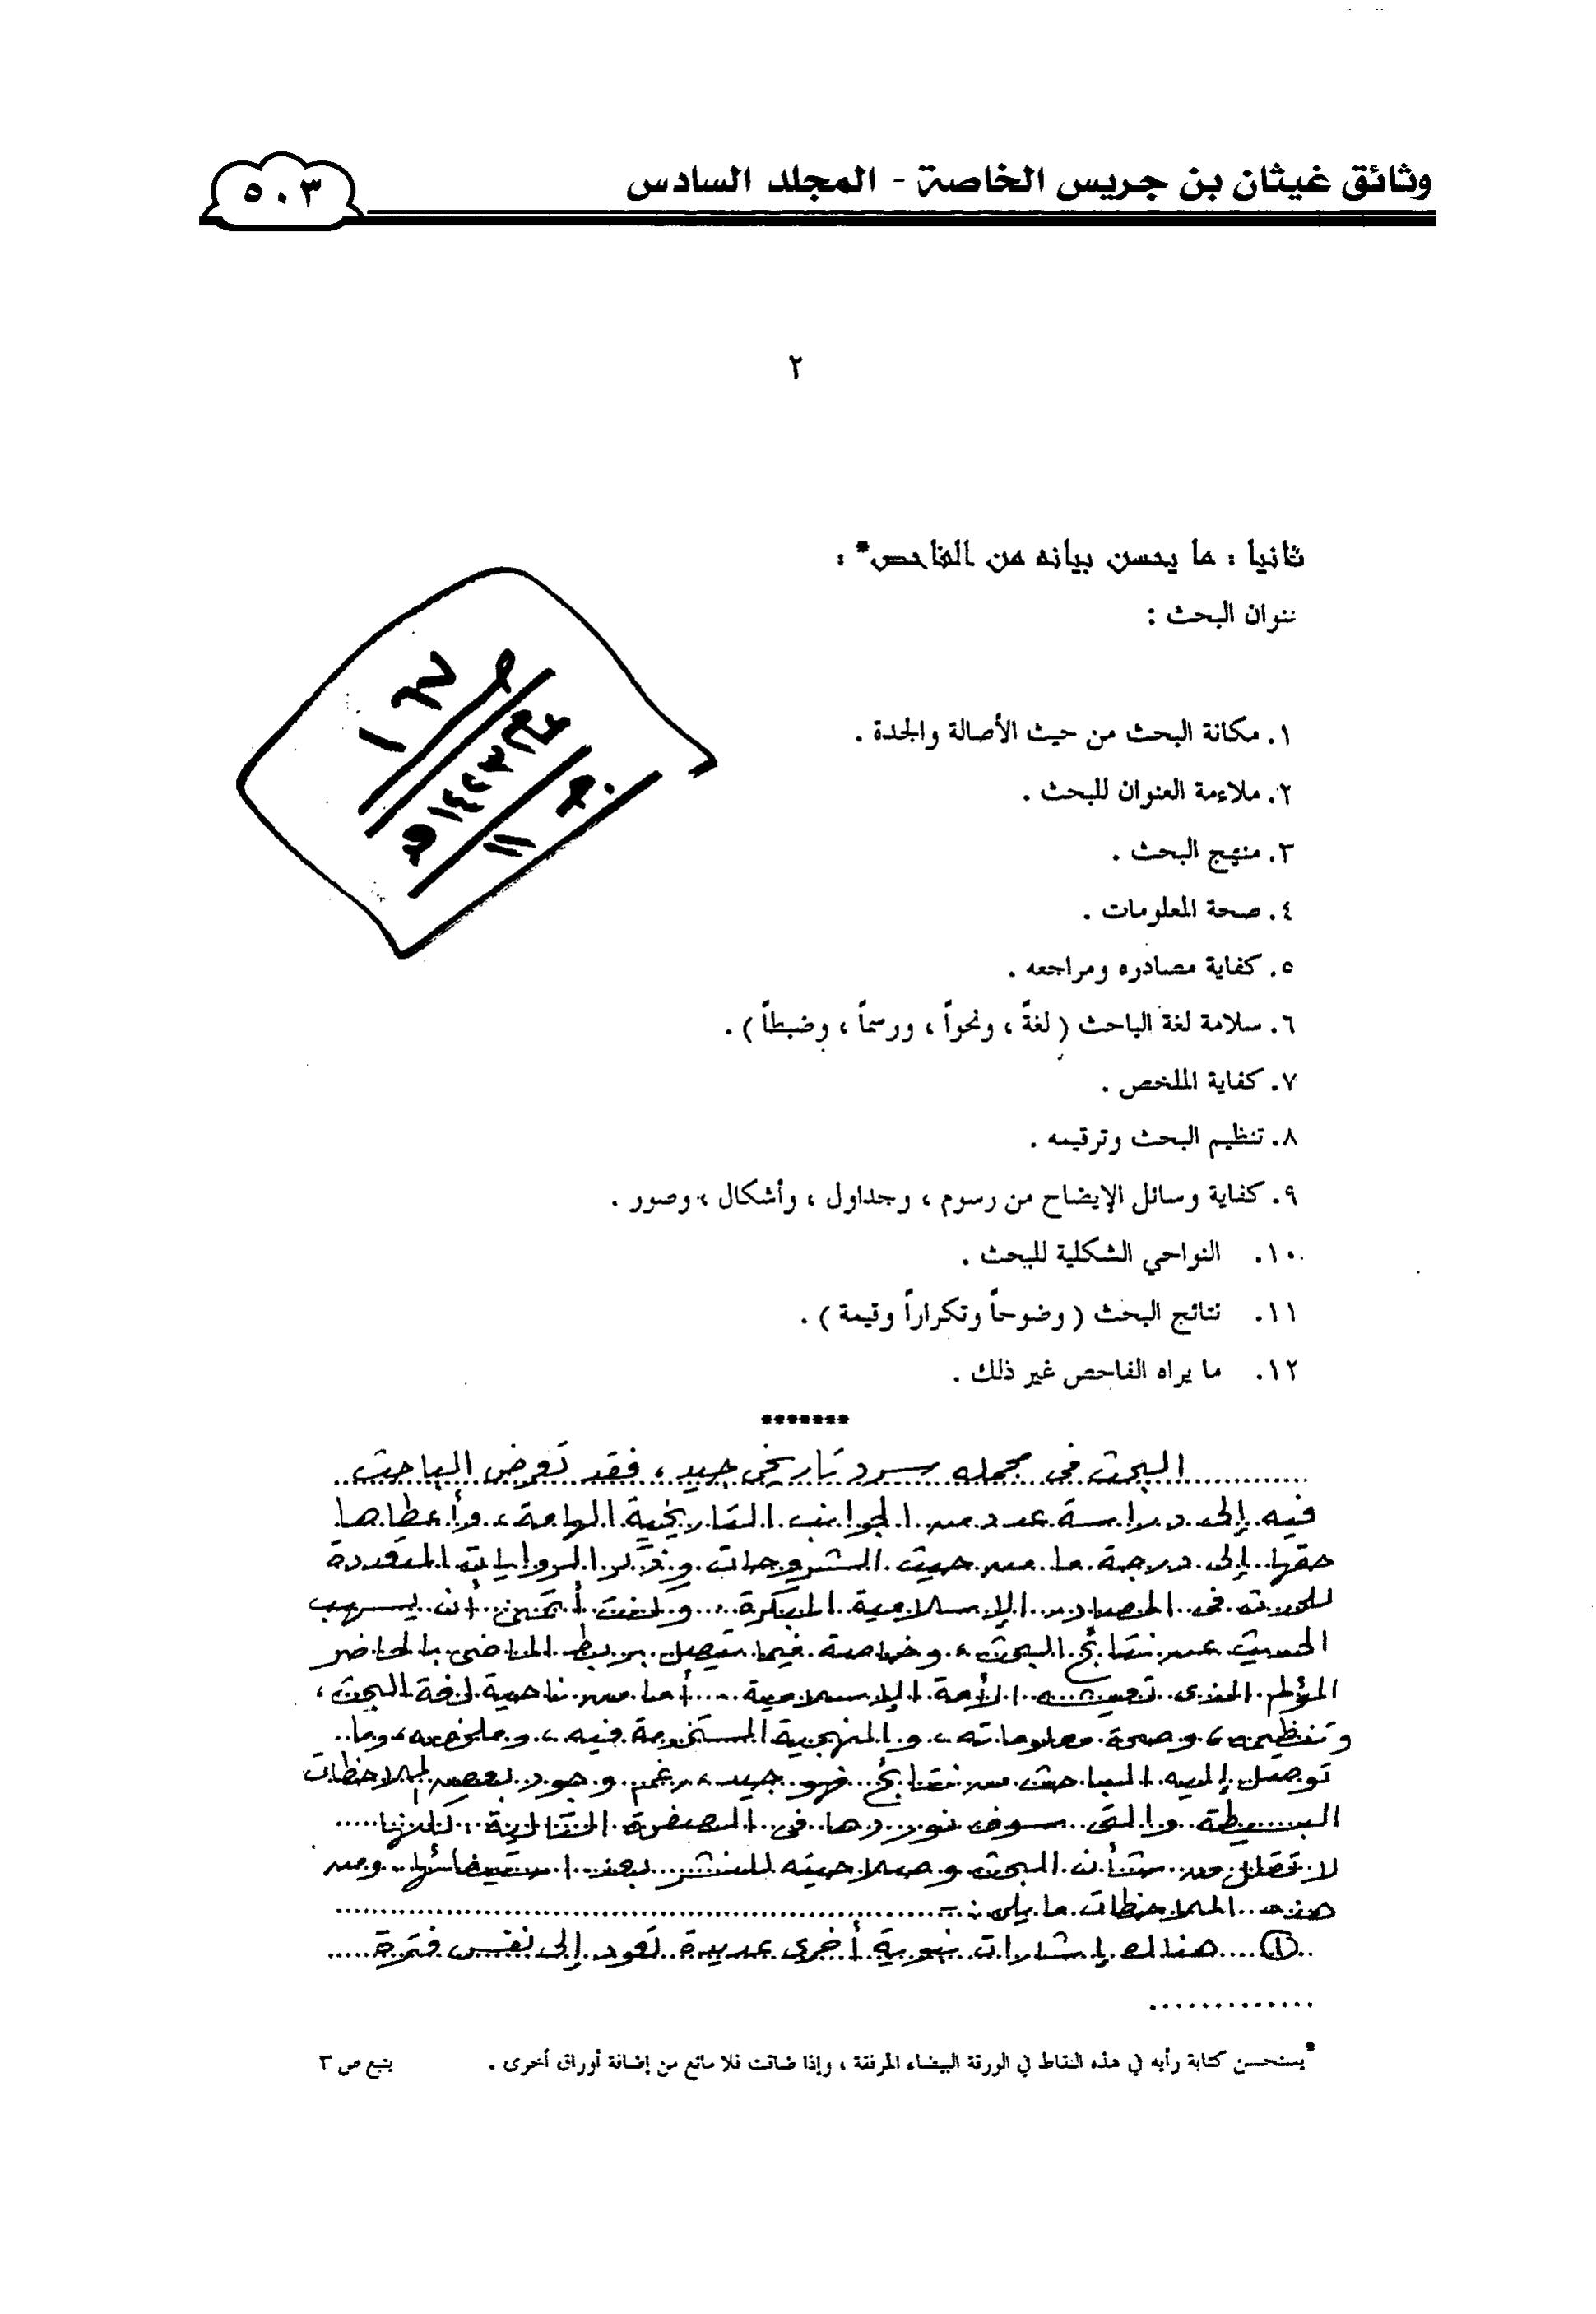 وثائق غيثان بن جريس الخاصة - المجلد السادس
٥٠٣
٢
ثانيا : ما يحسن بيانه من الفاحص* :
عنوان البحث :
١. مكانة البحث من حيث الأصالة والجدة .
٢. ملاءمة العنوان للبحث .
٣. منهج البحث .
٤. صحة المعلومات .
٥. كفاية مصادره ومراجعه .
٦. سلامة لغة الباحث ( لغةً ، ونحواً ، ورسماً ، وضبطاً ) .
٧. كفاية الملخص .
٨. تنظيم البحث وترقيمه .
٩. كفاية وسائل الإيضاح من رسوم ، وجداول ، وأشكال ، وصور .
١٠. النواحي الشكلية للبحث .
١١. نتائج البحث ( وضوحاً وتكراراً وقيمة ) .
١٢. ما يراه الفاحص غير ذلك .
*******
البحث في مجمله سرد تاريخي جيد ، فقد تعرض الباحث
فيه إلى دراسة عدد من الجوانب التاريخية الهامة ، وأعطاها
حقها إلى درجة ما من حيث الشروحات وذكر الروايات المتعددة
في المصادر الإسلامية المبكرة .. وكنت أتمنى أن يسهب
الحديث عن نتائج البحث ، وخاصة فيما يتصل بربط الماضي بالحاضر
المؤلم الذي تعيشه الأمة الإسلامية .. أما من ناحية لغة البحث ،
وتنظيمه ، وصحة معلوماته ، والمنهجية المستخدمة فيه ، وملخصه ، وما
توصل إليه الباحث من نتائج فهو جيد ، رغم وجود بعض الملاحظات
البسيطة والتي سوف نوردها في الصفحة التالية .. لكنها
لا تقلل من شأن البحث وصلاحيته للنشر بعد استيفائها .. ومن
هذه الملاحظات ما يلي :-
(١) هناك إشارات نبوية أخرى عديدة تعود إلى نفس فترة
* يستحسن كتابة رأيه في هذه النقاط في الورقة البيضاء المرفقة ، وإذا ضاقت فلا مانع من إضافة أوراق أخرى . يتبع ص ٣